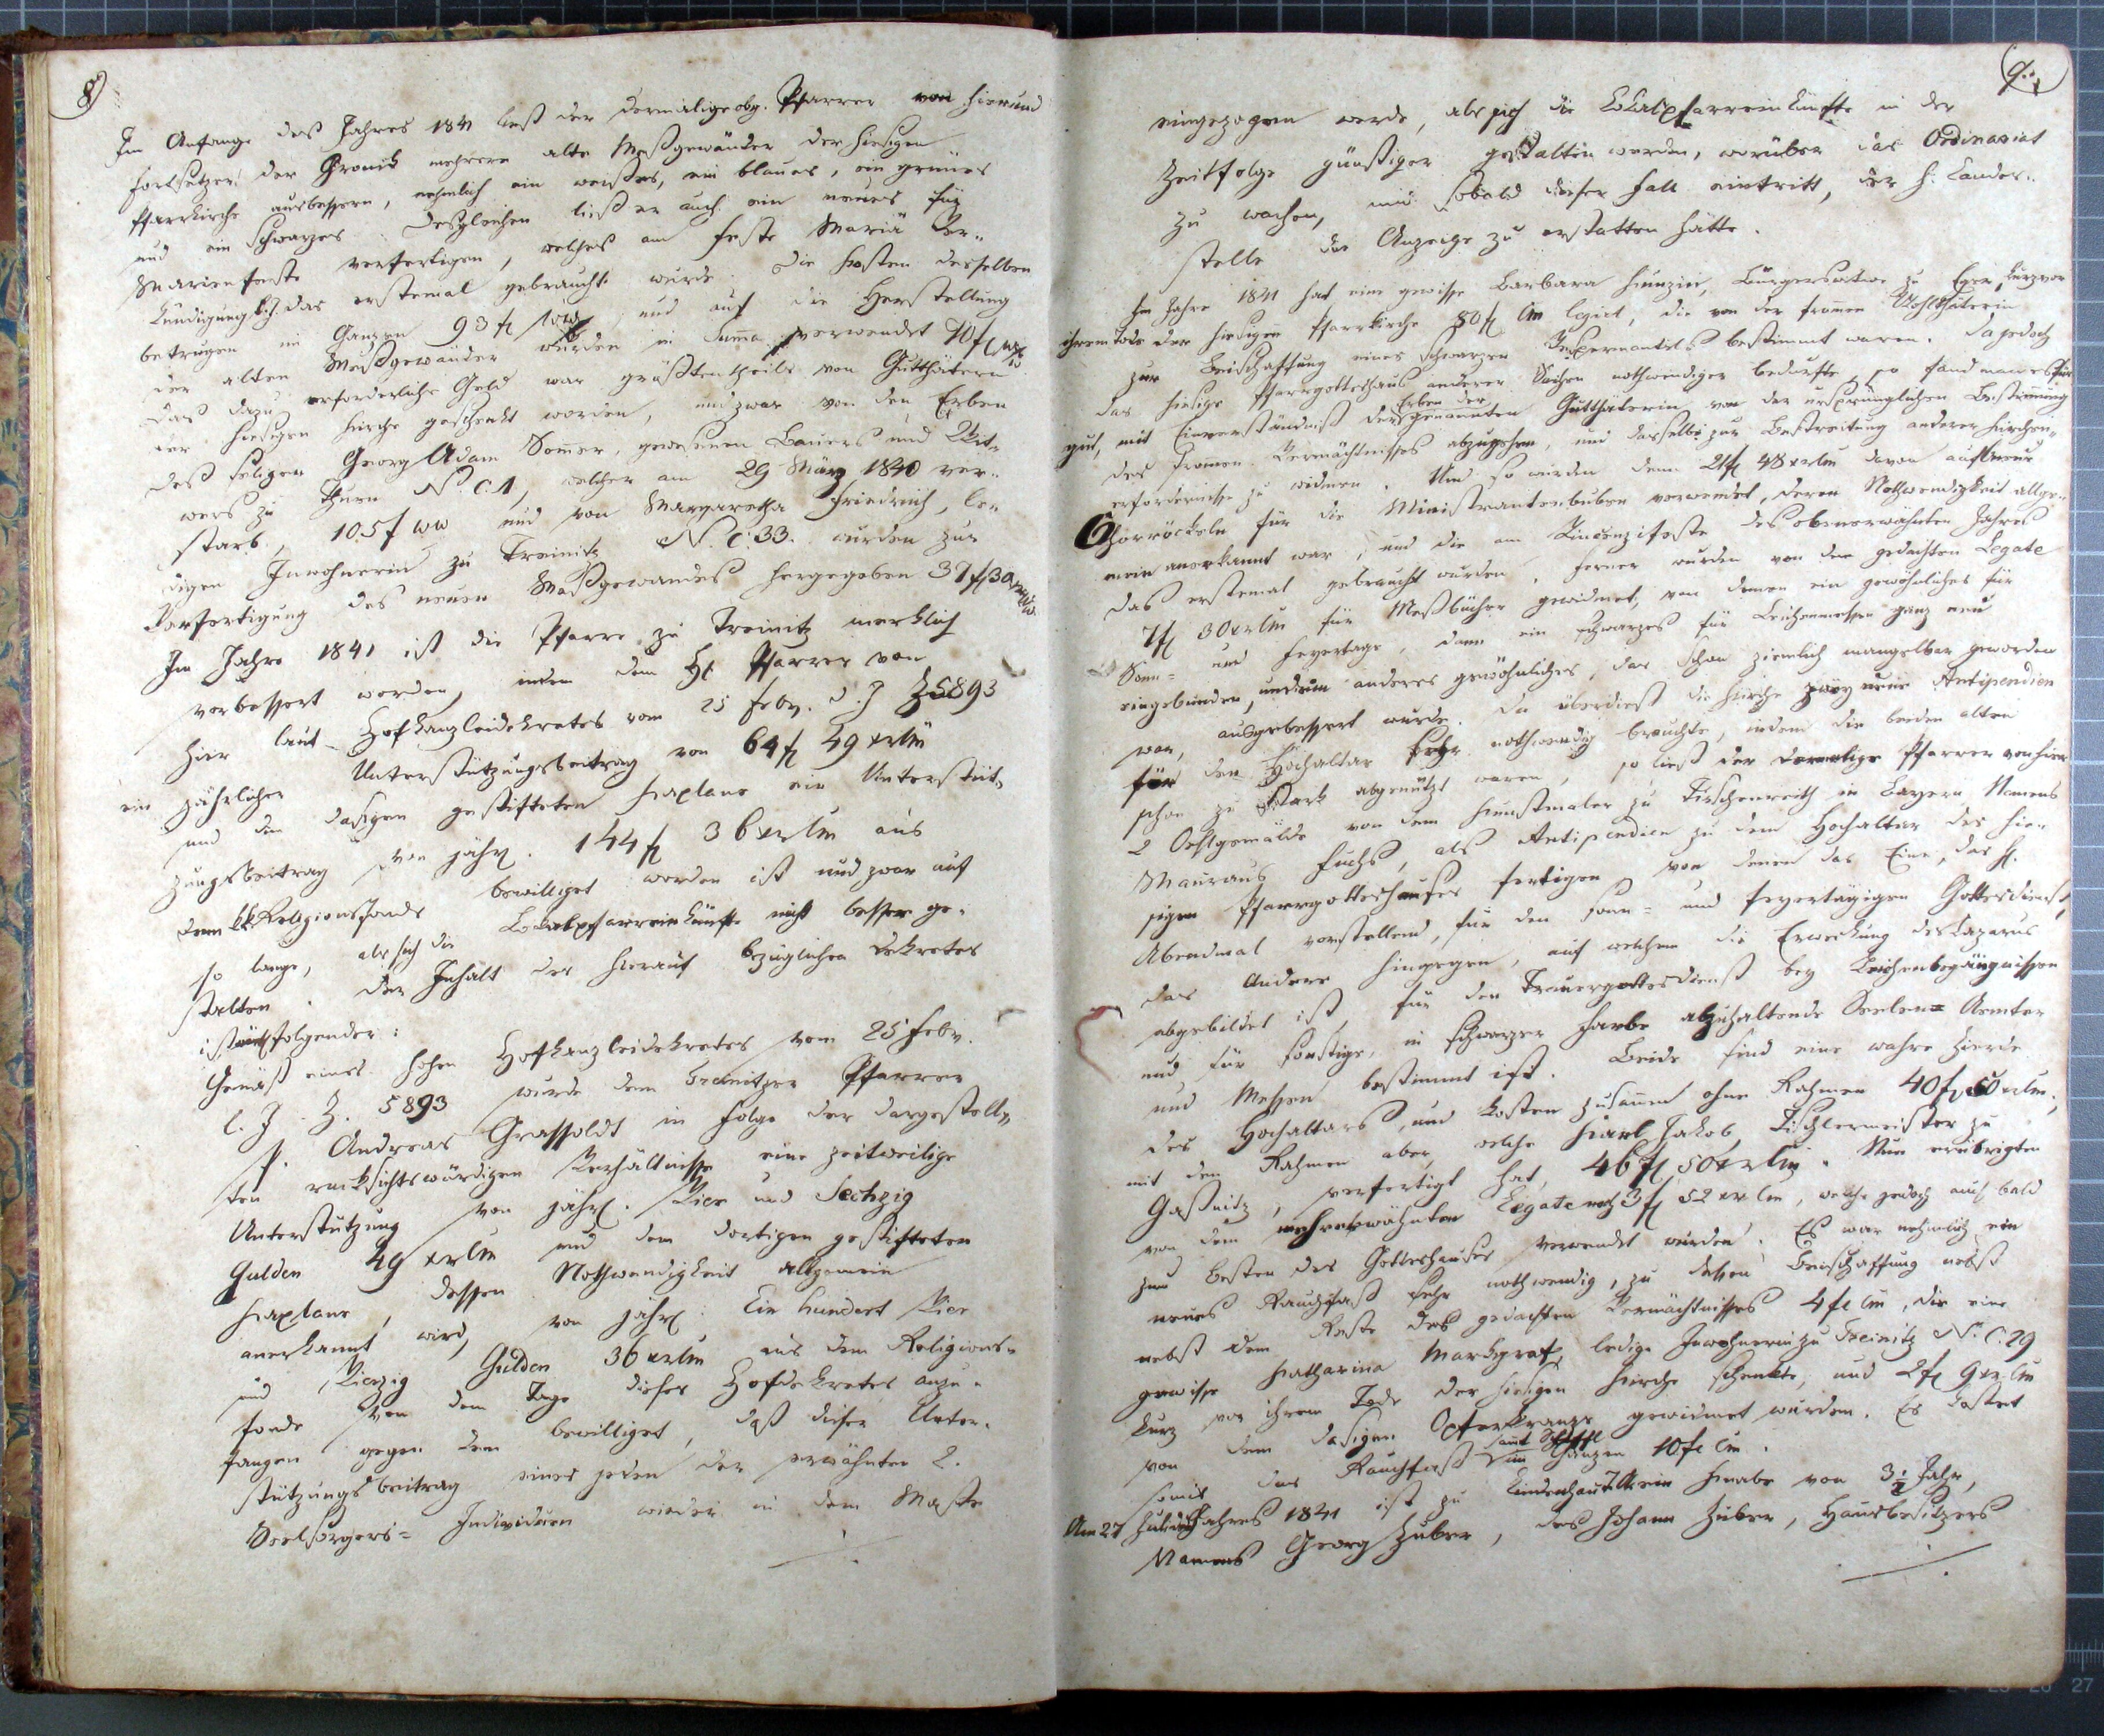 8
Im Anfange des Jahres 1841 ließ der dermalige obg. Pfarrer von hier und
Fortsetzer der Chronik mehrere alte Meßgewänder der hiesigen
Pfarrkirche ausbessern, nehmlich ein weißes, ein blaues, ein grünes
und ein schwarzes. Desgleichen ließ er auch ein neues für
Marienfeste verfertigen, welches am Feste Mariä Ver-
kündigung das erstemal gebraucht wurde. Die Kosten desselben
betrugen im Ganzen 93 f und auf die Herstellung
der alten Meßgewänder wurden in Suma verwendet 70 f
Das dazu erforderliche Geld war größtentheils von Gutthätern
der hiesigen Kirche geschenkt worden, und zwar von den Erben
des seligen Georg Adam Somer, gewesenen Bauers und
zu N. C. 1, welcher am 29 März 1840 ver-
starb, 105 f WW und von Margaretha Friedrich, le-
digen Inwohnerin zu Treinitz N. C. 33. wurden zur
Verfertigung des neuen Meßgewandes hergegeben 37 f 30
Im Jahre 1841 ist die Pfarre zu Treinitz merklich
verbessert worden, indem dem H. Pfarrer von
hier laut Hofkanzleidekretes vom 25 Febr. d. J Z 5893
ein jährlicher Unterstützungsbeitrag von 64 f 49 xr Cm
und dem dasigen gestifteten Kaplane ein Unterstüt-
zungsbeitrag von jährl. 144 f 36 xr Cm aus
dem kk Religionsfonds bewilliget worden ist und zwar auf
so lange, als sich die Lokalpfarreinkünfte nicht besser ge-
stalten. Der Inhalt des hierauf bezüglichen Dekretes
ist folgender:
Gemäß eines hohen Hofkanzleidekretes vom 25 Febr.
l. J. Z. 5893 wurde dem Treinitzer Pfarrer
P. Andreas Grassoldt in Folge der dargestell-
ten rücksichtswürdigen Verhältnisse eine zeitweilige
Unterstützung von jährl. Vier und Sechzig
Gulden 49 xr Cm und dem dortigen gestifteten
Kaplane, dessen Nothwendigkeit allgemein
anerkannt wird, von jährl. Ein hundert Vier
und Vierzig Gulden 36 xr Cm aus dem Religions-
fonde von dem Tage dieses Hofdekretes anzu-
fangen gegen dem bewilliget, daß dieser Unter-
stützungsbeitrag eines jeden der erwähnten 2.
Seelsorgers-Individuen wieder in dem Maße
9.
eingezogen werde, als sich die Lokalpfarreinkünfte in der
Zeitfolge günstiger gestalten werden, worüber das Ordinariat
zu wachen, und sobald dieser Fall eintritt, der h. Landes-
stelle die Anzeige zu erstatten hätte.
Im Jahre 1841 hat eine gewisse Barbara, Bürgerswitwe zu Eger, kurz vor
ihrem Tode der hiesigen Pfarrkirche 80 f Cm legirt, die von der fromen Wohlthäterin
zur Beischaffung eines schwarzen Vespermantels bestimmt waren. Da jedoch
das hiesige Pfarrgotteshaus anderer Sachen nothwendiger bedurfte, so fand man es für
gut, mit Einverständniß der Erben der genannten Gutthäterin von der ursprünglichen Bestimmung
des fromen Vermächtnisses abzugehen, und dasselbe zur Bestreitung anderer Kirchen-
erfordernisse zu widmen. Und so wurden denn 21 f 48 xr Cm davon auf neue
Chorröckeln für die Ministrantenbuben verwendet, deren Nothwendigkeit allge-
mein anerkannt war, und die am Vincenzifeste des obenerwähnten Jahres
das erstemal gebraucht wurden. Ferner wurden von dem gedachten Legate
7 f 30 xr Cm für Meßbücher gewidmet, von denen ein gewöhnliches für
Sonn- und Feyertage, dann ein schwarzes für Leichenmessen ganz neu
eingebunden, und ein anderes gewöhnliches, das schon ziemlich mangelbar geworden
war, ausgebessert wurde. Da überdieß die Kirche zwey neue Antipendien
für den Hochaltar sehr nothwendig brauchte, indem die beiden alten
schon zu stark abgenützt waren, so ließ der dermalige Pfarrer von hier
2 Oehlgemälde von dem Kunstmaler zu Tirschenreith in Bayern Namens
Maurus Fuchs, als Antipendien zu dem Hochaltar des hie-
sigen Pfarrgotteshauses fertigen, von denen das Eine, das h.
Abendmal vorstellend, für den sonn- und feyertägigen Gottesdienst,
das Andere hingegen, auf welchem die Erweckung des Lazarus
abgebildet ist, für den Trauergottesdienst bey Leichenbegängnissen
und für sonstige, in schwarzer Farbe abzuhaltende Seelen-Aemter
und Messen bestimmt ist. Beide sind eine wahre Zierde
des Hochaltars, und kosten zusamen ohne Rahmen 40 f 50 xr Cm,
mit den Rahmen aber, welche Karl Jakob, Tischlermeister zu
Gaßnitz, verfertigt hat, 46 f 50 xr Cm. Nun erübrigten
von dem mehrerwähnten Legate noch 3 f 52 xr Cm, welche jedoch auch bald
zum Besten des Gotteshauses verwendet wurden. Es war nehmlich ein
neues Rauchfaß sehr nothwendig, zu dessen Beischaffung nebst
nebst dem Reste des gedachten Vermächtnisses 4 f Cm, die eine
gewisse Katharina Markgraf, ledige Inwohnerin zu Treinitz N. C. 29
kurz vor ihrem Tode der hiesigen Kirche schenkte, und 2 f 9 xr Cm
von dem dasigen gewidmet wurden. Es kostet
somit das Rauchfaß samt im Ganzen 10 f Cm.
Am 27 Juli des Jahres 1841 ist zu Lindenhau ein Knabe von 3 1/2 Jahr,
Namens Georg Zuber, des Johann Zuber, Hausbesitzers